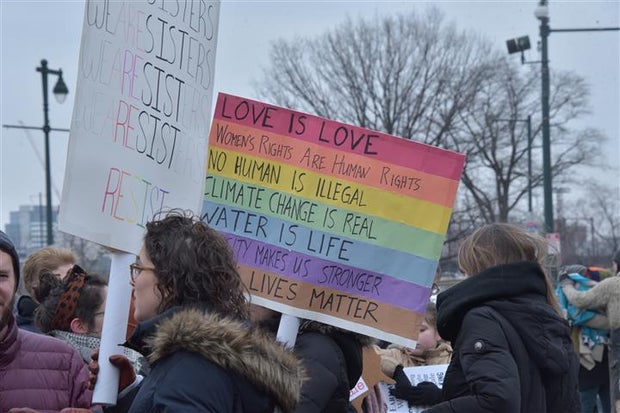 WE ARE SISTERS
WE ARE SISTERS
WE ARE RESIST
RESIST
RESIST
LOVE IS LOVE
WOMEN'S RIGHTS ARE HUMAN RIGHTS
NO HUMAN IS ILLEGAL
CLIMATE CHANGE IS REAL
WATER IS LIFE
MAKES US STRONGER
LIVES MATTER